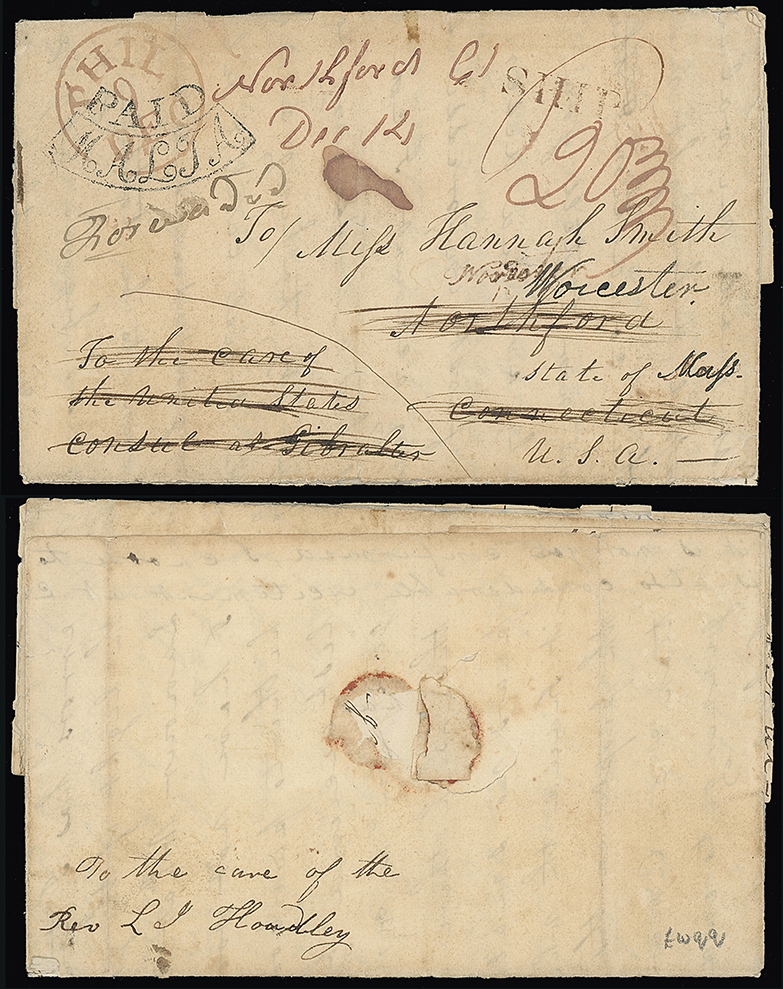 PHIL
9
DEC
PAID
MALTA
Northford Ct
Dec 14
SHIP
20
Forwarded
To/ Miss Hannah Smith
Worcester
Northford
To the care of
the United States
consul at Gibralter
State of Mass.
Connecticut
U. S. A. —
To the care of the
Rev L I Hoadley